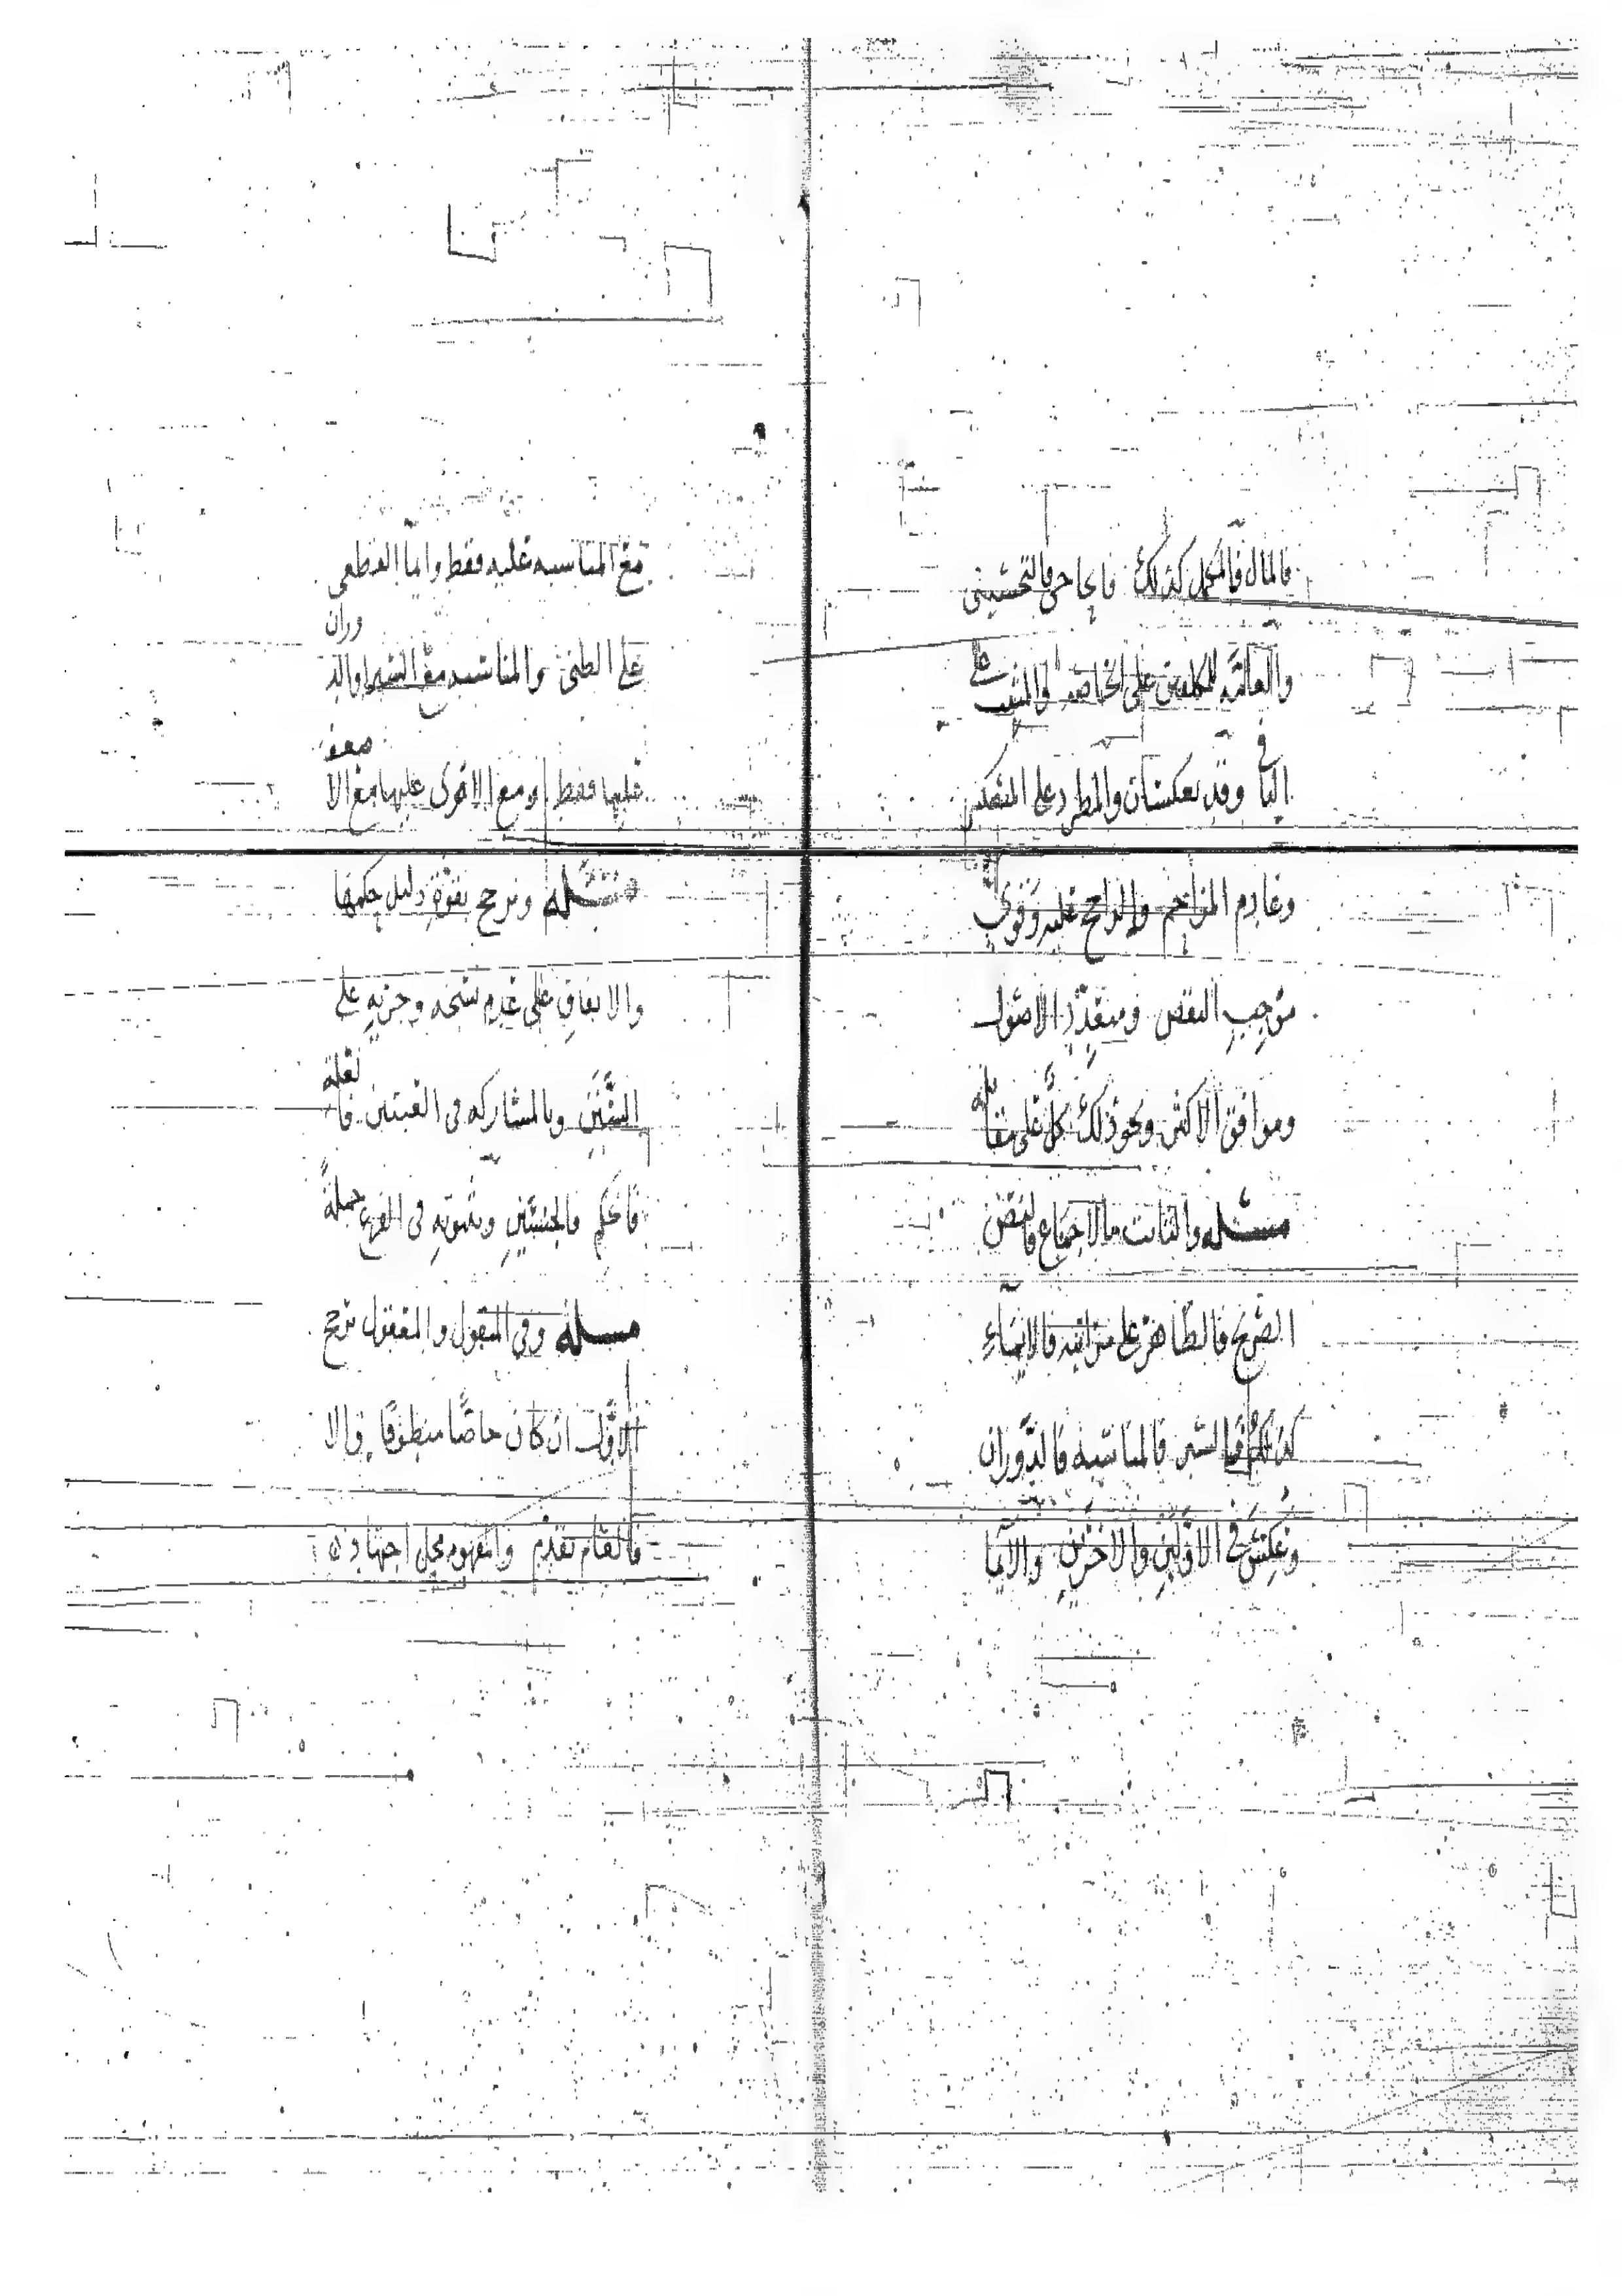 فالمال فالمكمل كذلك فالحاجي فالتحسيني
والعامة للمكلفين على الخاصة والمثبت على
النافي وقد يعكسان والمطرد على المنعكس
وعادم المزاحم والراجح عليه وقوي
موجب النقض ومتعدد الأصول
وموافق الاكثر ونحو ذلك كل على مقابله
مسئله والثابت بالاجماع فالنص
الصريح فالظاهر على مراتبه فالايماء
كذلك فالسبر فالمناسبه فالدوران
وعكس في الاولين والاخرين والايما
مع المناسبه عليه فقط واما القطعي
على الظني والمناسبه مع الشبه او الدوران
عليها فقط او مع الاقوى عليها مع الاضعف
مسئله وترجح بقوة دليل حكمها
والاتفاق على عدم نسخه وجريه على
السنن وبالمشاركه في العينين فالعلة
فالحكم فالجنسين وثبوته في الفرع جملة
مسئله وفي المنقول والمعقول ترجح
الاول ان كان خاصا منطوقا والا
فالعام تقدم والمفهوم محل اجتهاد